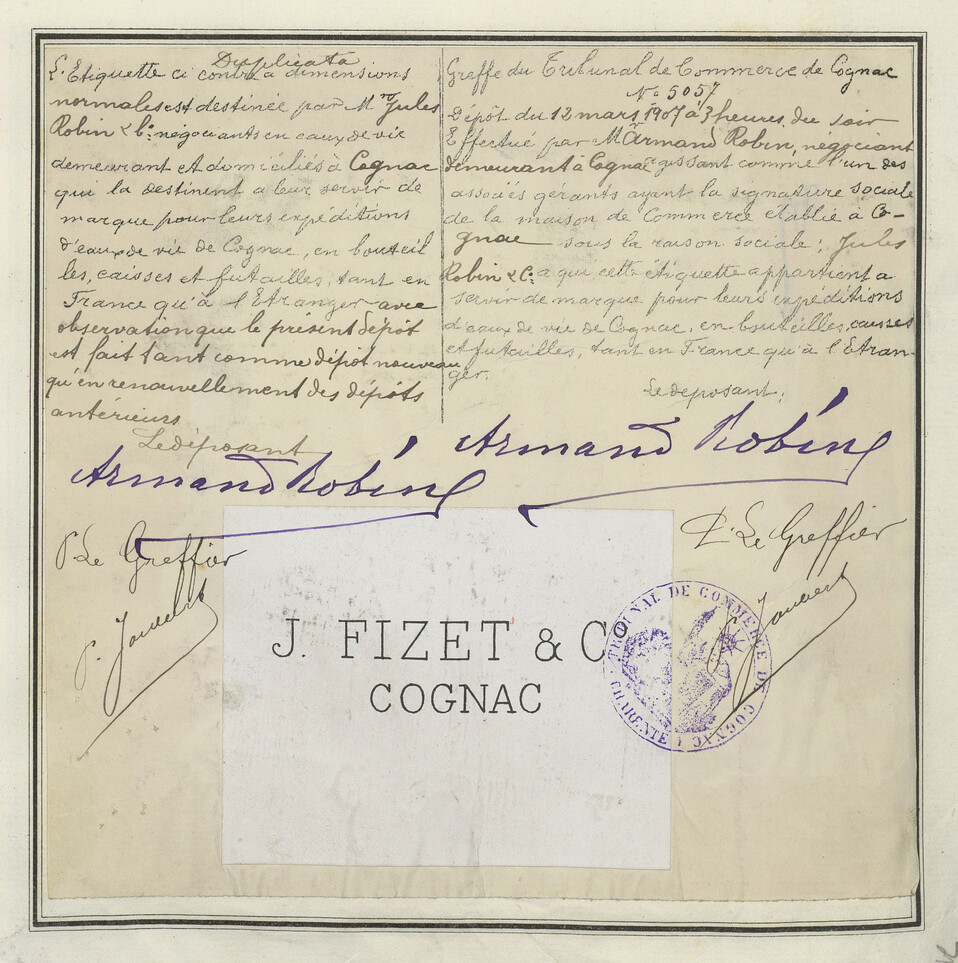 Duplicata
L'Etiquette ci contre à dimensions
normales est destinée par Mrs Jules
Robin & Co négociants en eaux de vie
demeurant et domiciliés à Cognac
qui la destinent a leur servir de
marque pour leurs expéditions
d'eaux de vie de Cognac, en bouteil
les, caisses et futailles, tant en
France qu'à l'Etranger avec
observation que le présent dépôt
est fait tant comme dépôt nouveau
qu'en renouvellement des dépôts
antérieurs
Le déposant
Armand Robin
P. Le Greffier
Greffe du Tribunal de Commerce de Cognac
No 5057
Dépôt du 12 mars 1907 à 3 heures du soir
Effectué par M. Armand Robin, négociant
demeurant à Cognac agissant comme l'un des
associés gérants ayant la signature sociale
de la maison de Commerce établie à Co-
gnac sous la raison sociale: Jules
Robin & Co a qui cette étiquette appartient a
servir de marque pour leurs expéditions
d'eaux de vie de Cognac, en bouteilles, caisses
et futailles, tant en France qu'à l'Etran-
ger.
Le déposant:
Armand Robin
P. Le Greffier
J. FIZET & Co
COGNAC
TRIBUNAL DE COMMERCE DE COGNAC
CHARENTE